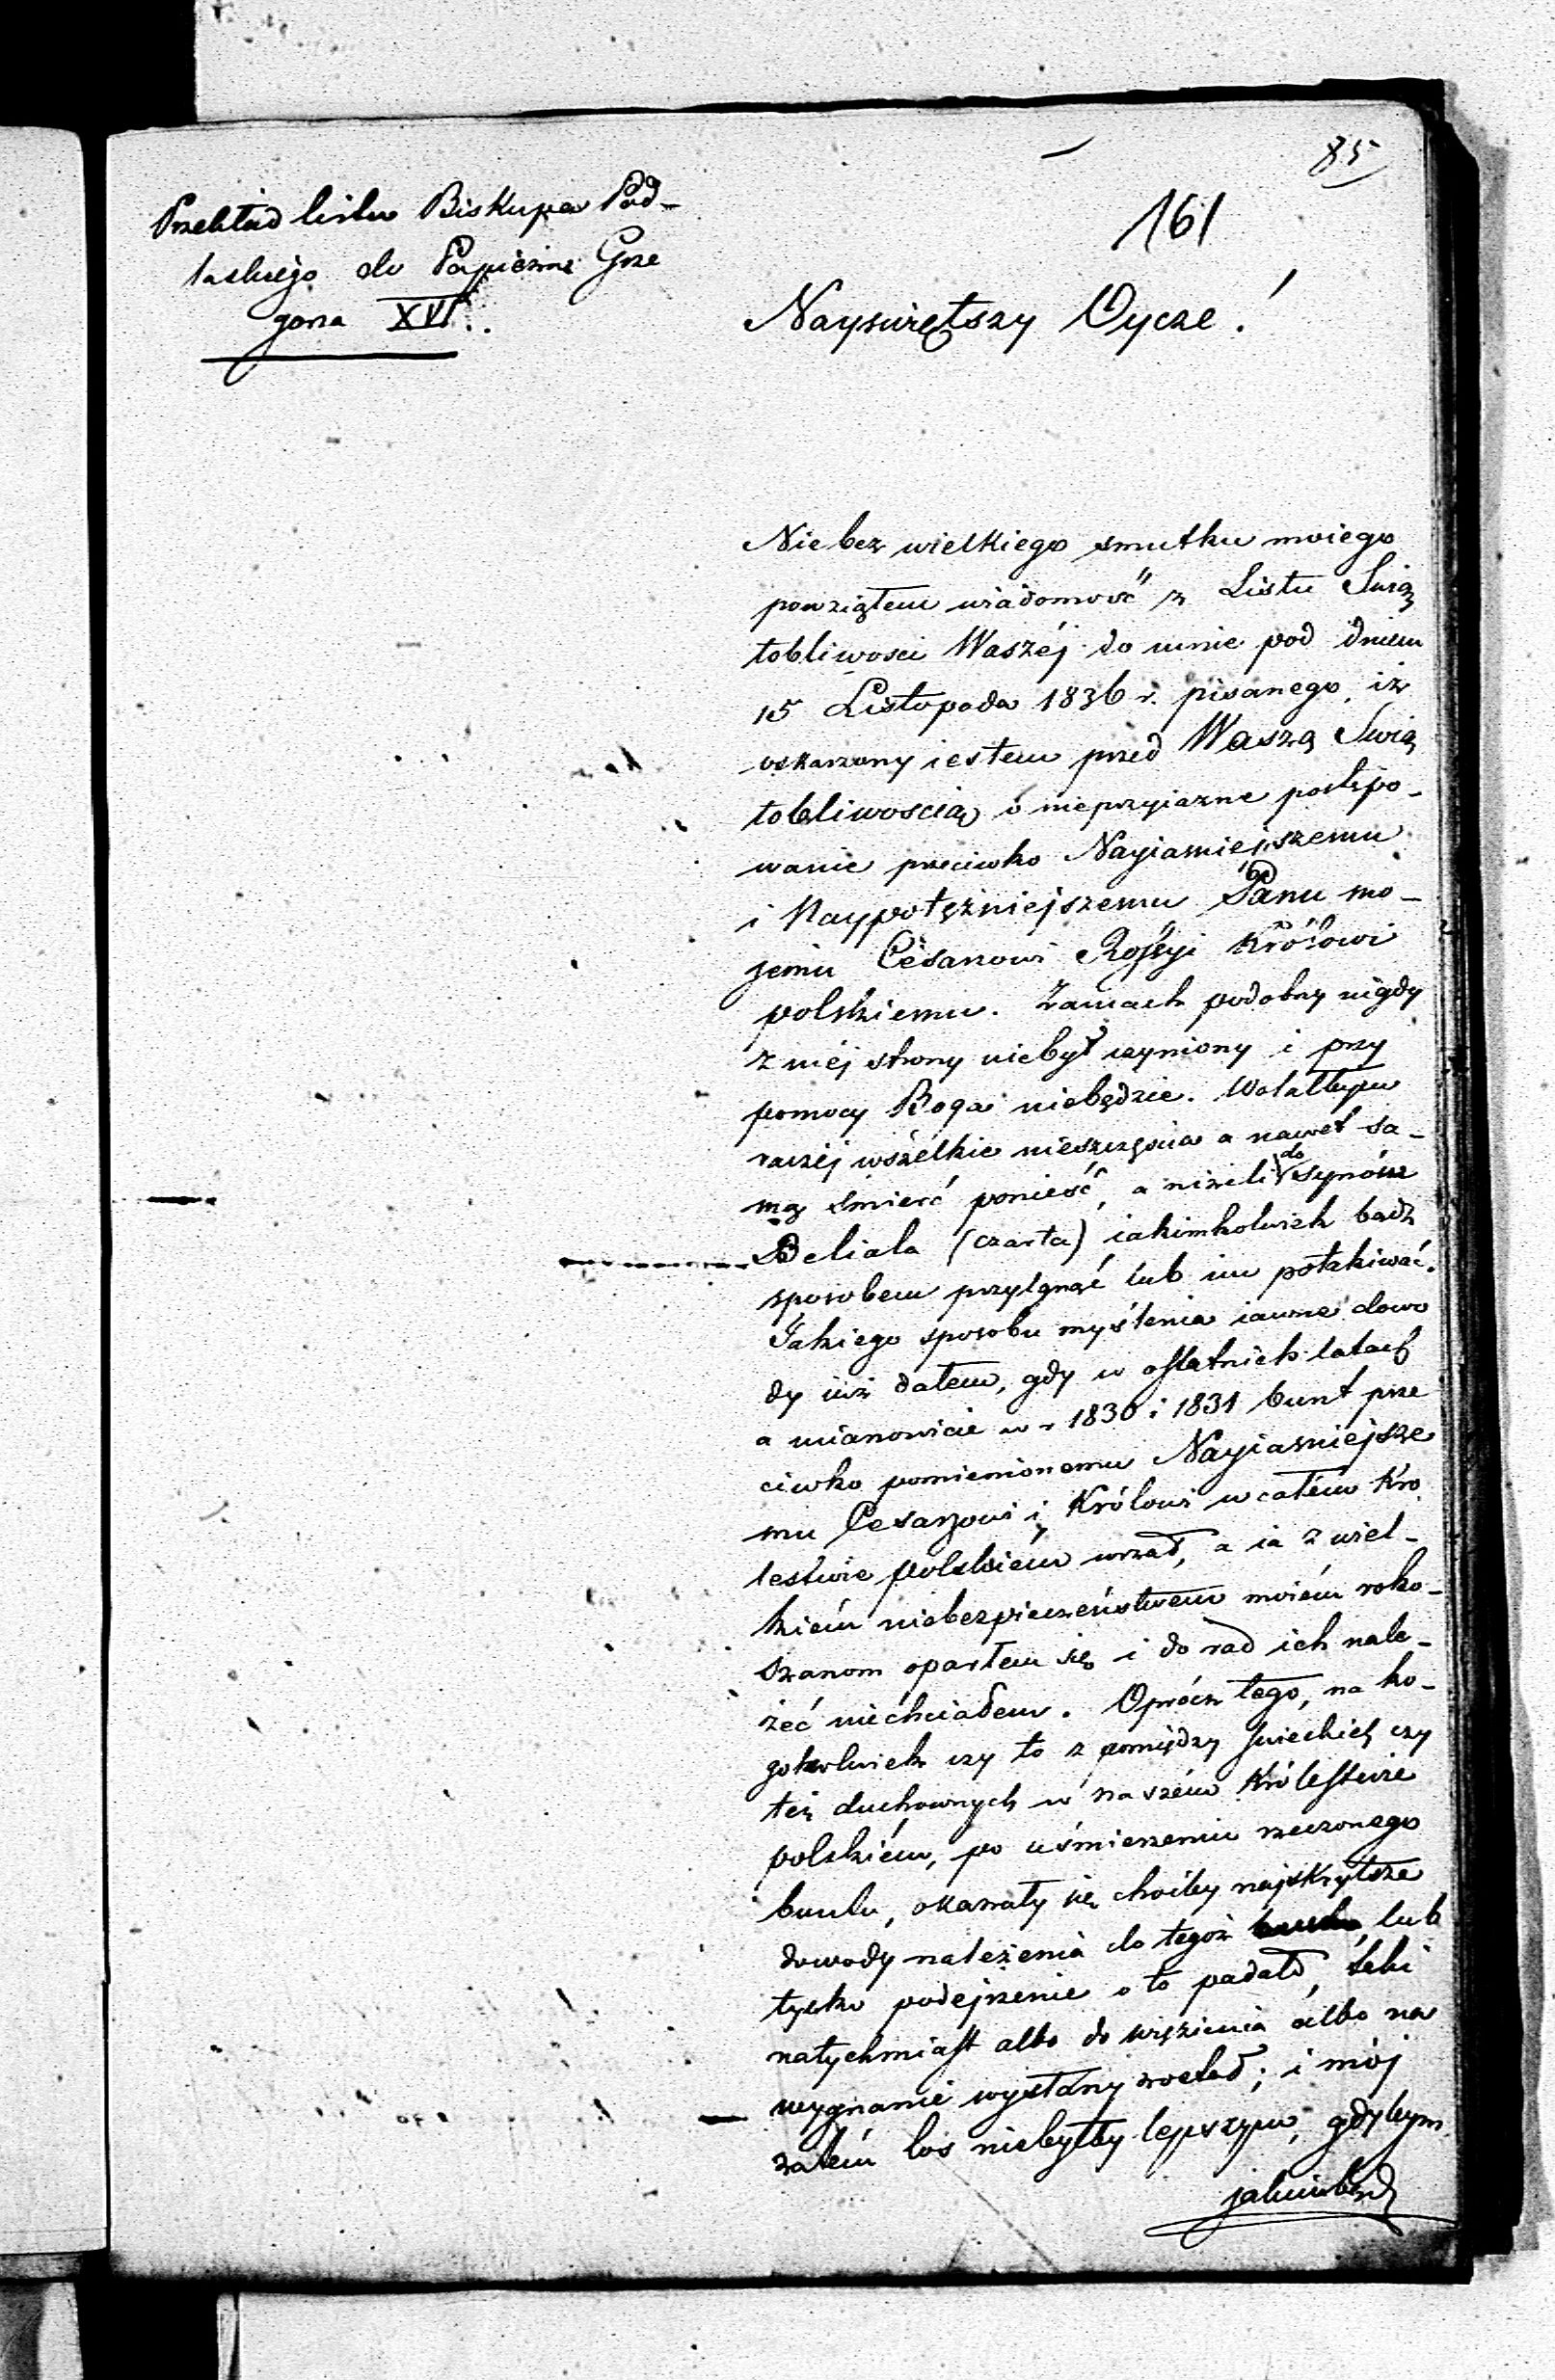 85
161
Przekład listu Biskupa Pod-
laskiego do Papieża Grze
gorza XVI.
Nayswiętszy Oycze!
Nie bez wielkiego smutku moiego
powziąłem wiadomość z Listu Swią
tobliwosci Waszéj do mnie pod dniem
15 Listopada 1836 r. pisanego, iż
oskarzony iestem przed Waszą Swią
tobliwoscią o nieprzyiazne postępo-
wanie przeciwko Nayiasniejszemu
i Naypotężniejszemu Panu mo-
jemu Cesarzowi Rossyi Królowi
polskiemu. Zamach podobny nigdy
z méj strony niebył czyniony i przy
pomocy Boga niebędzie. Wolałbym
raczéj wszelkie nieszczęścia a nawet sa-
mą śmierć ponieść, a niżeli do synów
Beliala (czarta) iakimkolwiek bądź
sposobem przylgnąć lub im potakiwać.
Jakiego sposobu myślenia iawne dowo
dy iuż dałem, gdy w ostatnich latach
a mianowicie w r 1830 i 1831 bunt prze
ciwko pomienionemu Nayiasniejsze
mu Cesarzowi i Królowi w całém Kró
lestwie polskiém wrzał, a ia z wiel-
kiém niebezpieczeństwem moiém roko-
szanom oparłem się i do rad ich nale-
żéć niechciałem. Oprócz tego, na ko-
gokolwiek czy to z pomiędzy swieckich czy
też duchownych w naszém Królestwie
polskiém, po uśmierzeniu rzeczonego
buntu, okazały się choćby najskrytsze
dowody należenia do tegoż lub
tylko podejrzenie o to padało, tenże
natychmiast albo do więzienia albo na
wygnanie wysłany został; i mój
zatém los niebyłby lepszym, gdybym
jakimbądź